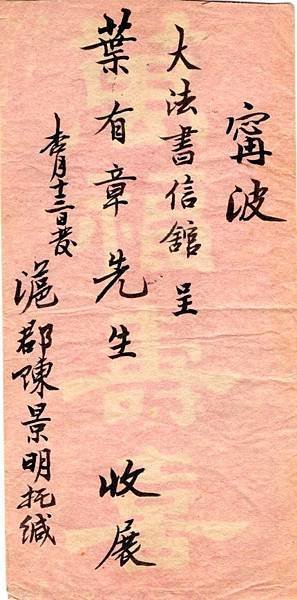 甯波
大法書信舘呈
葉有章先生 收展
杏月十三日發
滬郡陳景明托緘